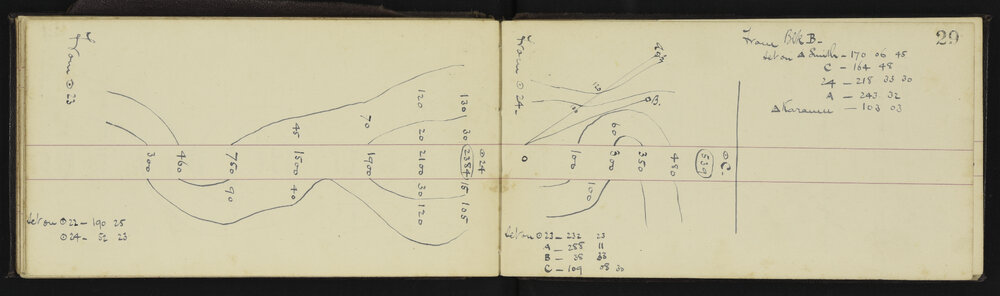 From ⊙ 23
300
460
750
90
45
1500
40
70
1900
120
20
2100
30
120
130
30
⊙ 24
2384
15
105
Set on ⊙ 22 - 190 25
⊙ 24 - 52 23
From ⊙ 24
0
B.
100
100
60
300
350
480
539
⊙ C.
Set on ⊙ 23 - 232 23
A - 288 11
B - 35 33
C - 109 08 30
29
From Blk B.
Set on △ Smith - 170 06 45
C - 164 48
24 - 218 33 30
A - 243 32
△ Karamu - 103 03